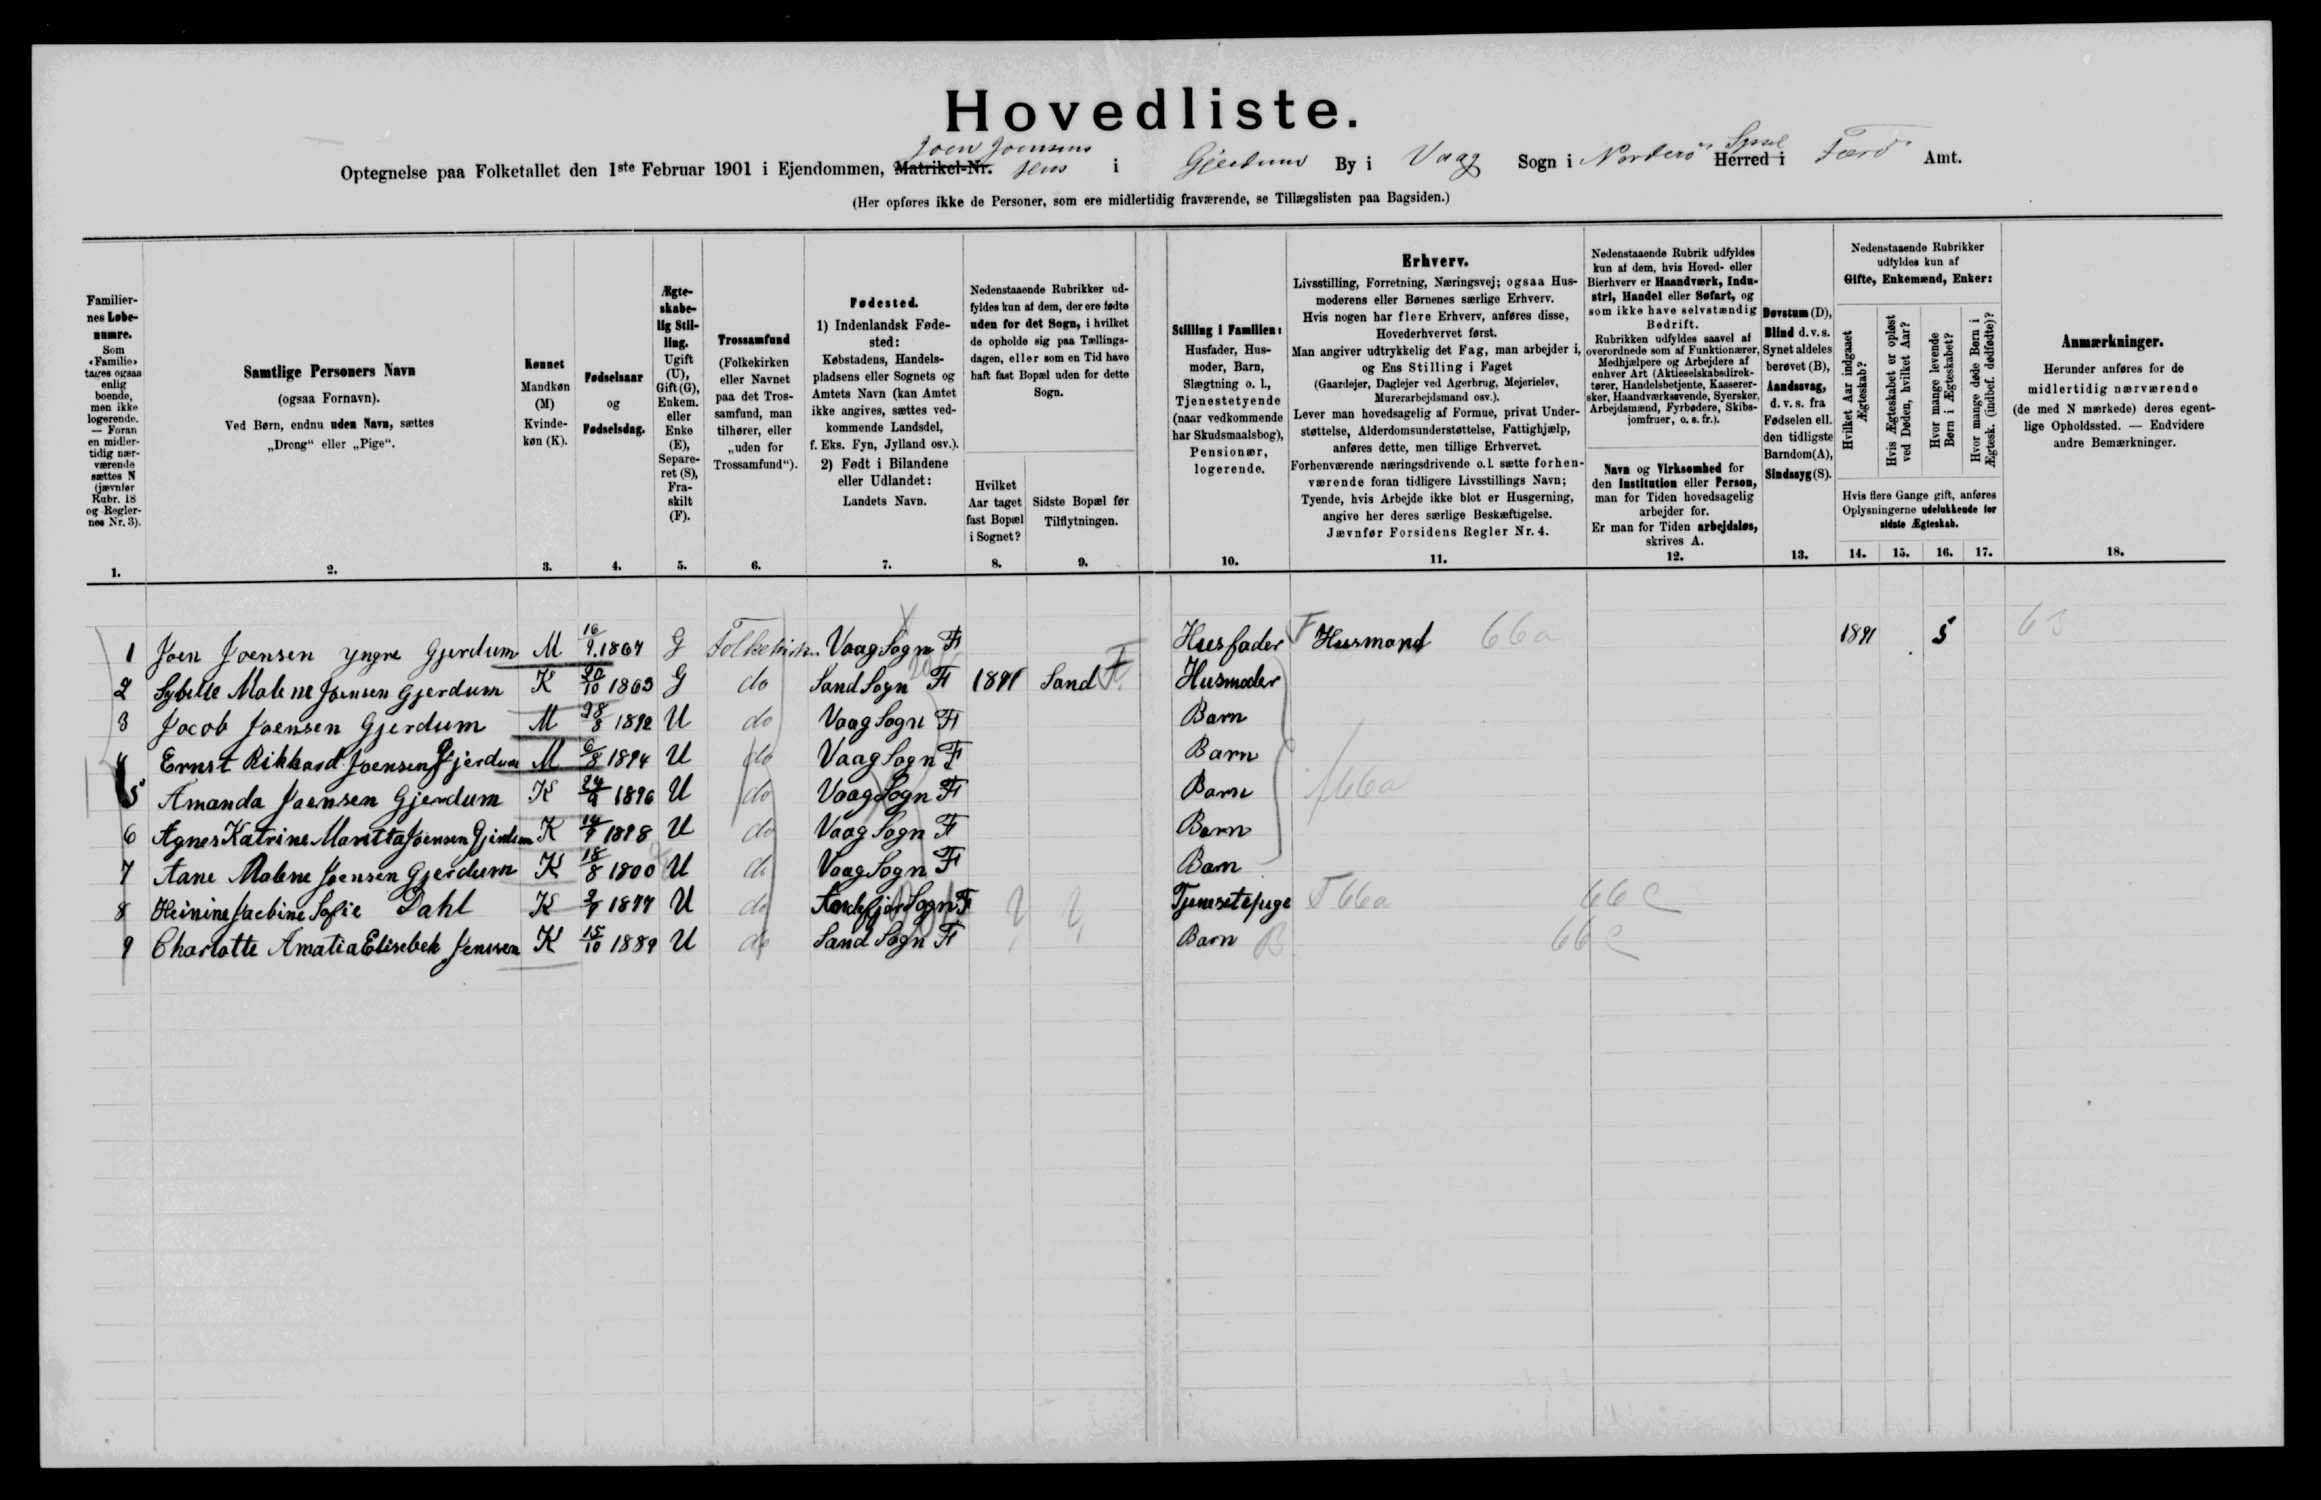 Hovedliste.
Joen Joensens
Optegnelse paa Folketallet den 1ste Februar 1901 i Ejendommen, Matrikel-Nr. Hus i Gjerdum By i Vaag Sogn i Norderø Syssel Herred i Færø Amt.
(Her opføres ikke de Personer, som ere midlertidig fraværende, se Tillægslisten paa Bagsiden.)
Familier-
nes Løbe-
numre.
Som
«Familie»
tages ogsaa
enlig
boende,
men ikke
logerende.
— Foran
en midler-
tidig nær-
værende
sættes N
(jævnfør
Rubr. 18
og Regler-
nes Nr. 3).
1.
Samtlige Personers Navn
(ogsaa Fornavn).
Ved Børn, endnu uden Navn, sættes
„Dreng“ eller „Pige“.
2.
Kønnet
Mandkøn
(M)
Kvinde-
køn (K).
3.
Fødselsaar
og
Fødselsdag.
4.
Ægte-
skabe-
lig Stil-
ling.
Ugift
(U),
Gift (G),
Enkem.
eller
Enke
(E),
Separe-
ret (S),
Fra-
skilt
(F).
5.
Trossamfund
(Folkekirken
eller Navnet
paa det Tros-
samfund, man
tilhører, eller
„uden for
Trossamfund“).
6.
Fødested.
1) Indenlandsk Føde-
sted:
Købstadens, Handels-
pladsens eller Sognets og
Amtets Navn (kan Amtet
ikke angives, sættes ved-
kommende Landsdel,
f. Eks. Fyn, Jylland osv.).
2) Født i Bilandene
eller Udlandet:
Landets Navn.
7.
Nedenstaaende Rubrikker ud-
fyldes kun af dem, der ere fødte
uden for det Sogn, i hvilket
de opholde sig paa Tællings-
dagen, eller som en Tid have
haft fast Bopæl uden for dette
Sogn.
Hvilket
Aar taget
fast Bopæl
i Sognet?
8.
Sidste Bopæl før
Tilflytningen.
9.
Stilling i Familien:
Husfader, Hus-
moder, Barn,
Slægtning o. l.,
Tjenestetyende
(naar vedkommende
har Skudsmaalsbog),
Pensionær,
logerende.
10.
Erhverv.
Livsstilling, Forretning, Næringsvej; ogsaa Hus-
moderens eller Børnenes særlige Erhverv.
Hvis nogen har flere Erhverv, anføres disse,
Hovederhvervet først.
Man angiver udtrykkelig det Fag, man arbejder i,
og Ens Stilling i Faget
(Gaardejer, Daglejer ved Agerbrug, Mejerielev,
Murerarbejdsmand osv.).
Lever man hovedsagelig af Formue, privat Under-
støttelse, Alderdomsunderstøttelse, Fattighjælp,
anføres dette, men tillige Erhvervet.
Forhenværende næringsdrivende o.l. sætte forhen-
værende foran tidligere Livsstillings Navn;
Tyende, hvis Arbejde ikke blot er Husgerning,
angive her deres særlige Beskæftigelse.
Jævnfør Forsidens Regler Nr. 4.
11.
Nedenstaaende Rubrik udfyldes
kun af dem, hvis Hoved- eller
Bierhverv er Haandværk, Indu-
stri, Handel eller Søfart, og
som ikke have selvstændig
Bedrift.
Rubrikken udfyldes saavel af
overordnede som af Funktionærer,
Medhjælpere og Arbejdere af
enhver Art (Aktieselskabsdirek-
tører, Handelsbetjente, Kasserer-
sker, Haandværkssvende, Syersker,
Arbejdsmænd, Fyrbødere, Skibs-
jomfruer, o. s. fr.).
Navn og Virksomhed for
den Institution eller Person,
man for Tiden hovedsagelig
arbejder for.
Er man for Tiden arbejdsløs,
skrives A.
12.
Døvstum (D),
Blind d. v. s.
Synet aldeles
berøvet (B),
Aandssvag,
d. v. s. fra
Fødselen ell.
den tidligste
Barndom (A),
Sindssyg (S).
13.
Nedenstaaende Rubrikker
udfyldes kun af
Gifte, Enkemænd, Enker:
Hvilket Aar indgaaet
Ægteskab?
Hvis Ægteskabet er opløst
ved Døden, hvilket Aar?
Hvor mange levende
Børn i Ægteskabet?
Hvor mange døde Børn i
Ægtesk. (indbef. dødfødte)?
Hvis flere Gange gift, anføres
Oplysningerne udelukkende for
sidste Ægteskab.
14. 15. 16. 17.
Anmærkninger.
Herunder anføres for de
midlertidig nærværende
(de med N mærkede) deres egent-
lige Opholdssted. — Endvidere
andre Bemærkninger.
18.
1 Joen Joensen yngre Gjerdum M 16/9 1867 G Folkekirken Vaag Sogn F Husfader F Husmand 66a 1891 5 63
2 Sybille Malene Joensen Gjerdum K 20/10 1863 G do Sand Sogn F 1891 Sand F. Husmoder
3 Jacob Joensen Gjerdum M 28/8 1892 U do Vaag Sogn F Barn
4 Ernst Rikhard Joensen Gjerdum M 6/8 1894 U do Vaag Sogn F Barn
5 Amanda Joensen Gjerdum K 1896 U do Vaag Sogn F Barn 66a
6 Agnes Katrine Maritta Joensen Gjerdum K 1898 U do Vaag Sogn F Barn
7 Aane Malene Joensen Gjerdum K 18/8 1800 U do Vaag Sogn F Barn
8 Heinine Jacbine Sofie Dahl K 1877 U do Sogn F ? ? Tjenestepige T 66a 66 C
9 Charlotte Amalia Elisebek Jensen K 15/10 1889 U do Sand Sogn F Barn B. 66 C